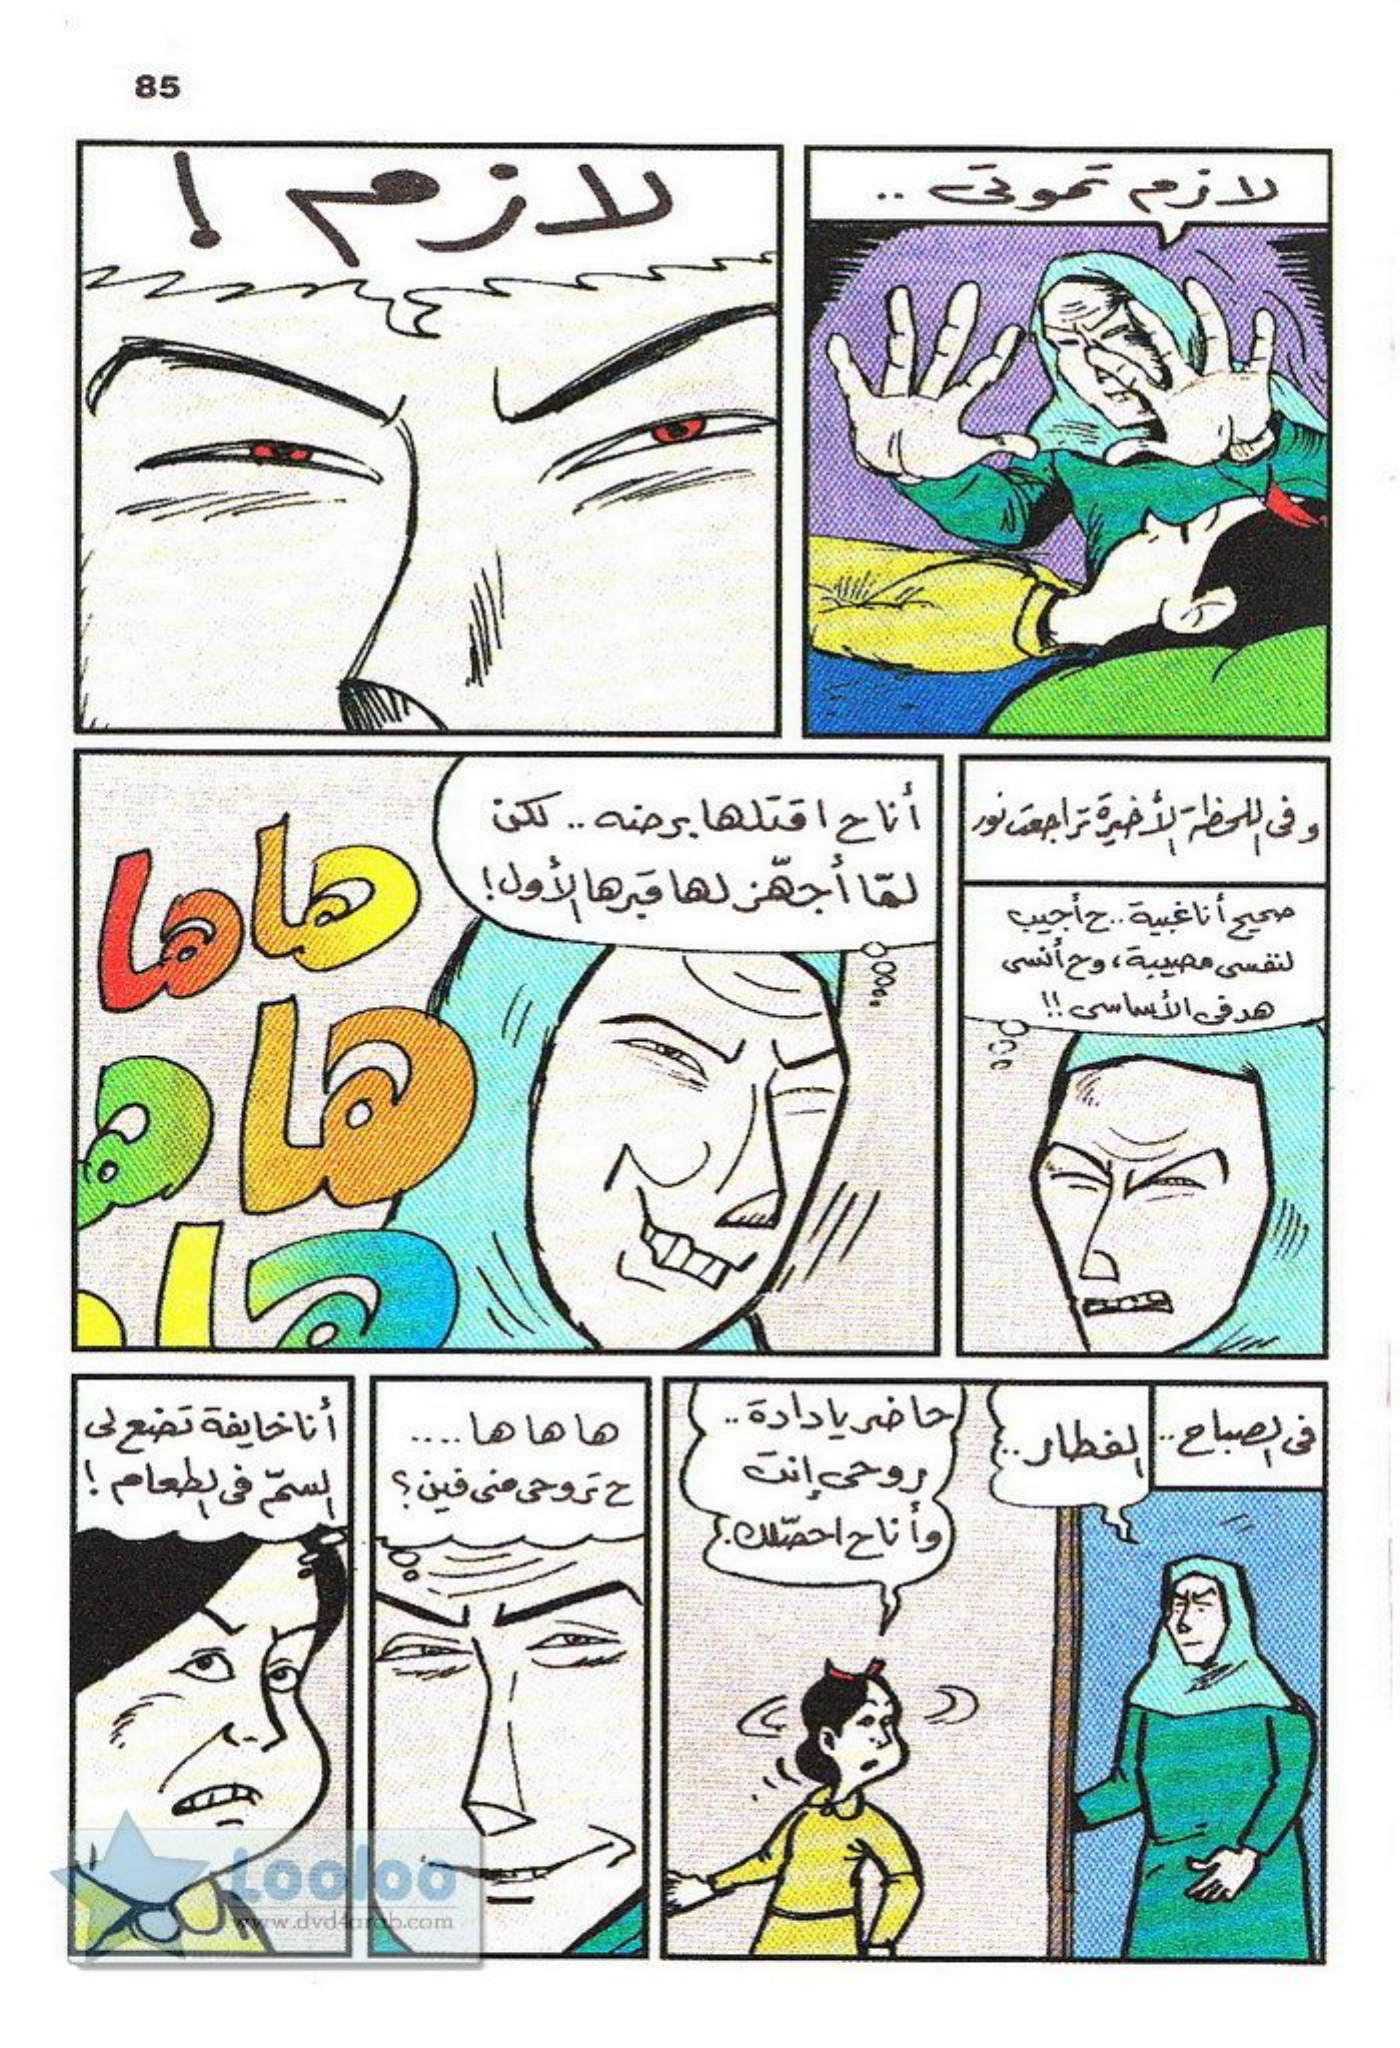 85
لازم تموتى ..
لازم !
وفى اللحظة الأخيرة تراجعت نور
صحيح أنا غبية .. ح أجيب
لنفسى مصيبة، وح أنسى
هدفى الأساسى !!
أنا ح اقتلها برضه .. لكن
لمّا أجهّز لها قبرها الأول !
هاها
ها
ه
ها
فى الصباح ..
الفطار ..
حاضر يا دادة ..
روحى إنت
وأنا ح احصّلك .
ها ها ها ....
ح تروحى منى فين ؟
أنا خايفة تضع لى
السمّ فى الطعام !
Looloo
www.dvd4arab.com